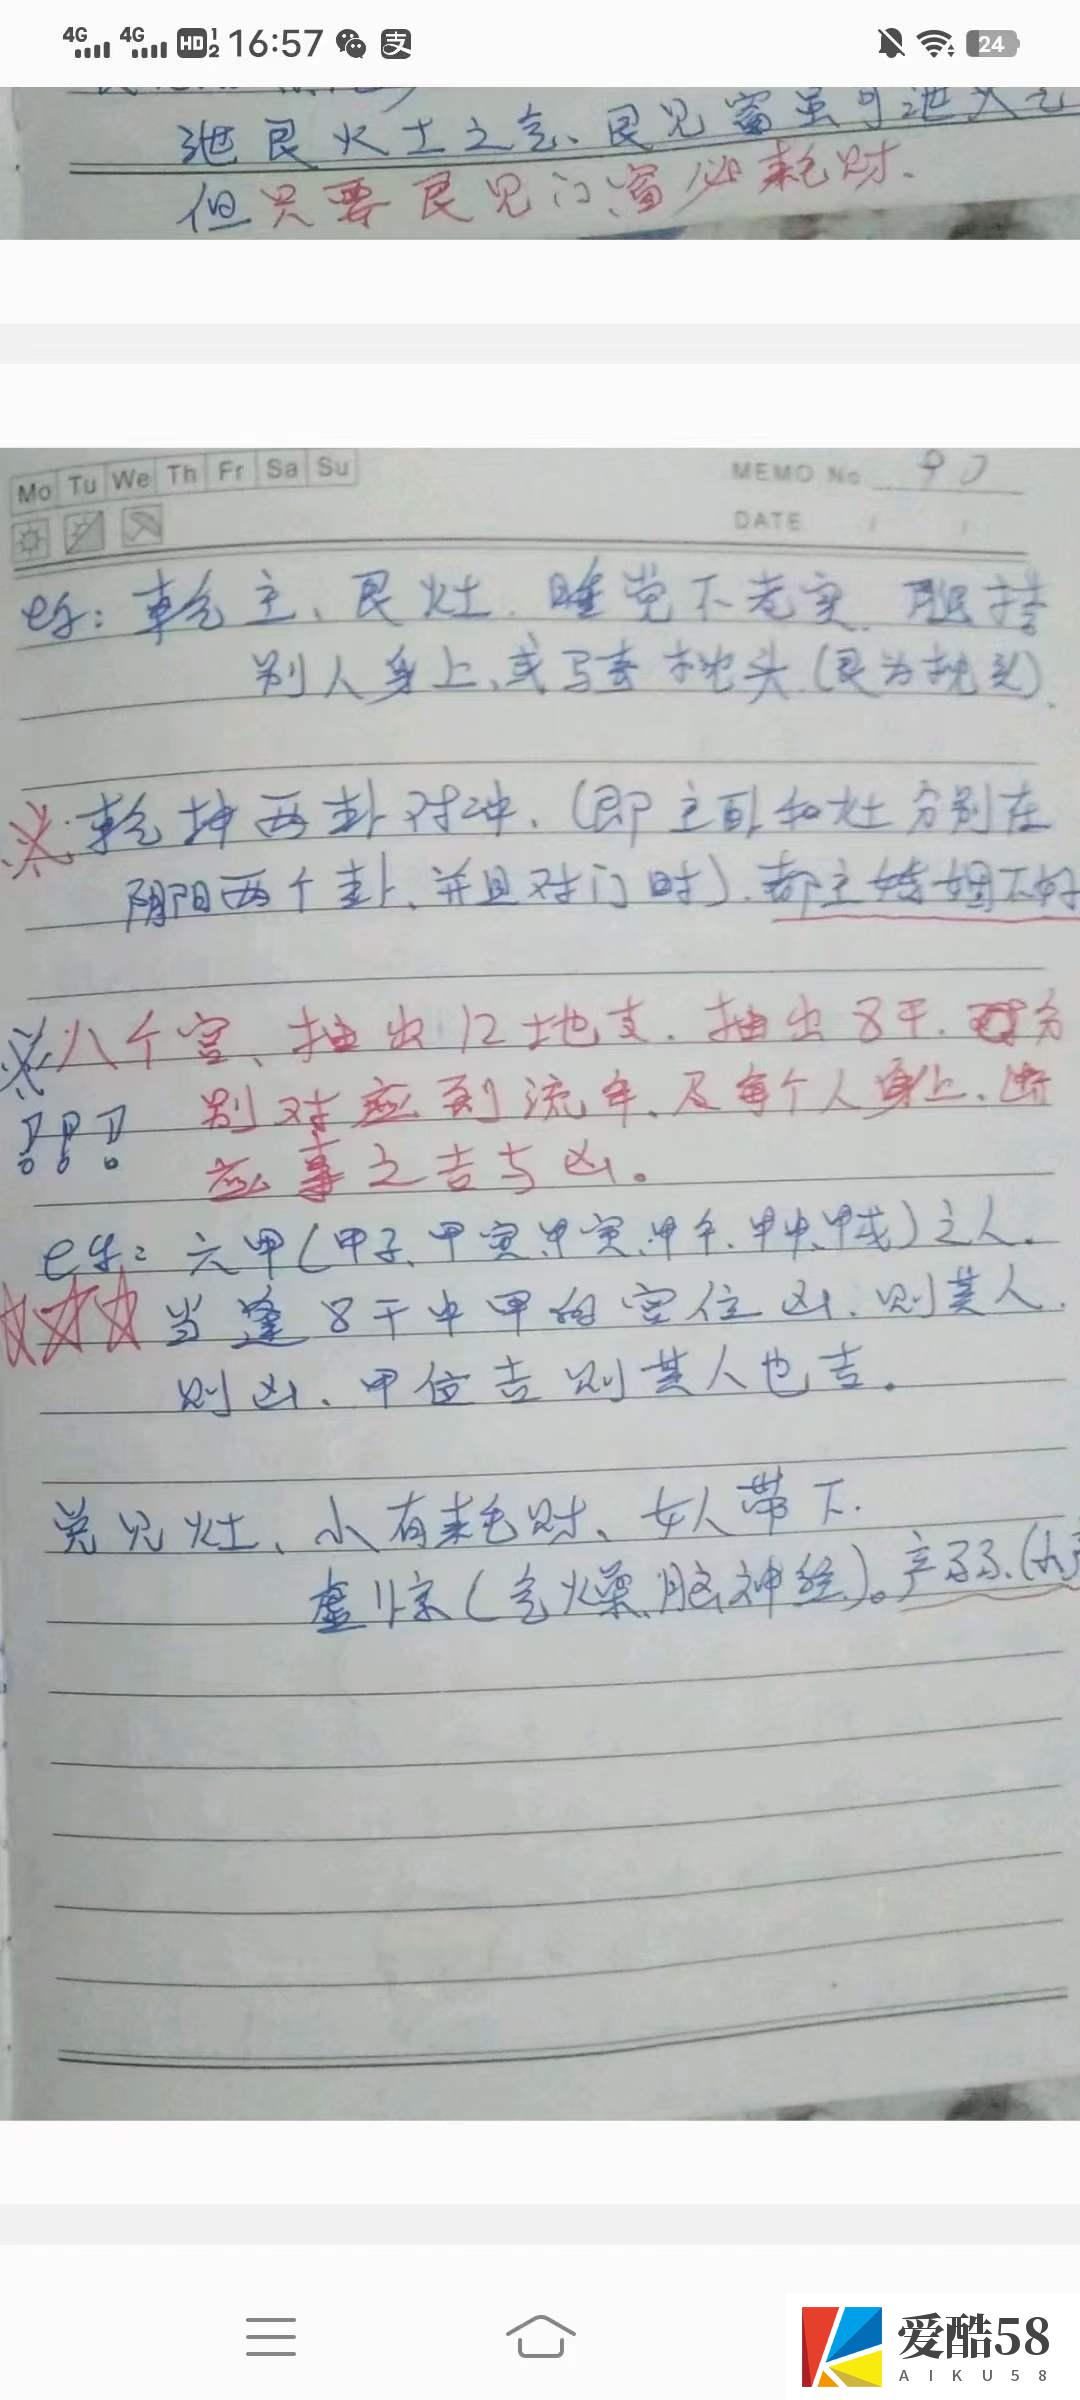 4G 4G HD 1 2 16:57 支 24
泄艮火土之气、艮见窗虽可泄火
但只要艮见门、窗必耗财、
Mo Tu We Th Fr Sa Su
MEMO No 90
DATE / /
eg: 乾主、艮灶. 睡觉不老实. 腿搭
别人身上、或骑枕头(艮为枕头).
乾坤两卦对冲、(即主卧和灶分别在
阴阳两个卦、并且对门时).都主婚姻不好
八个宫、抽出12地支. 抽出8干. 分
别对应到流年、及每个人身上、断
应事之吉与凶。
eg: 六甲(甲子、甲寅、甲寅、甲午、甲申、甲戌)之人、
!!!
当逢8干中甲的宫位凶、则其人
则凶、甲位吉则其人也吉。
兑见灶、小有耗财、女人带下.
虚惊(气燥、脑神经)。产弱、(小产
爱酷58
AIKU58